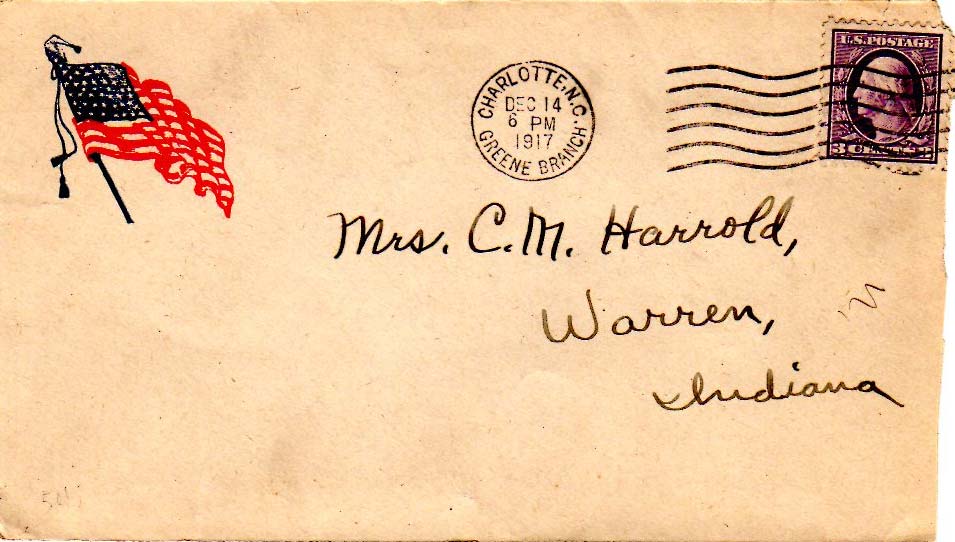 U.S. POSTAGE
CHARLOTTE, N.C.
DEC 14
6 PM
1917
GREENE BRANCH
3 CENTS 3
Mrs. C. M. Harrold,
Warren,
Indiana